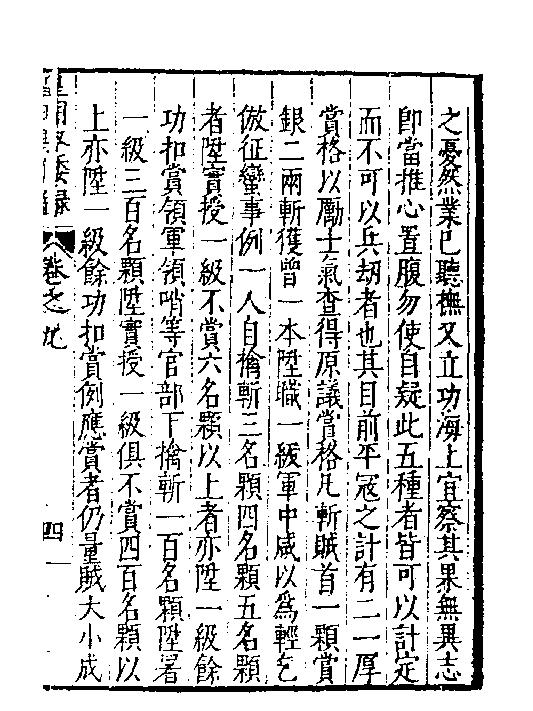 之憂然業已聽撫又立功海上宜察其果無異志
卽當推心置腹勿使自疑此五種者皆可以計定
而不可以兵刼者也其目前平冦之計有二一厚
賞格以勵士氣查得原議賞格凡斬賊首一顆賞
銀二兩斬獲曾一本陞職一級軍中咸以爲輕乞
倣征蠻事例一人自擒斬三名顆四名顆五名顆
者陞實授一級不賞六名顆以上者亦陞一級餘
功扣賞領軍領哨等官部下擒斬一百名顆陞署
一級三百名顆陞實授一級俱不賞四百名顆以
上亦陞一級餘功扣賞例應賞者仍量賊大小成
卷之九
四